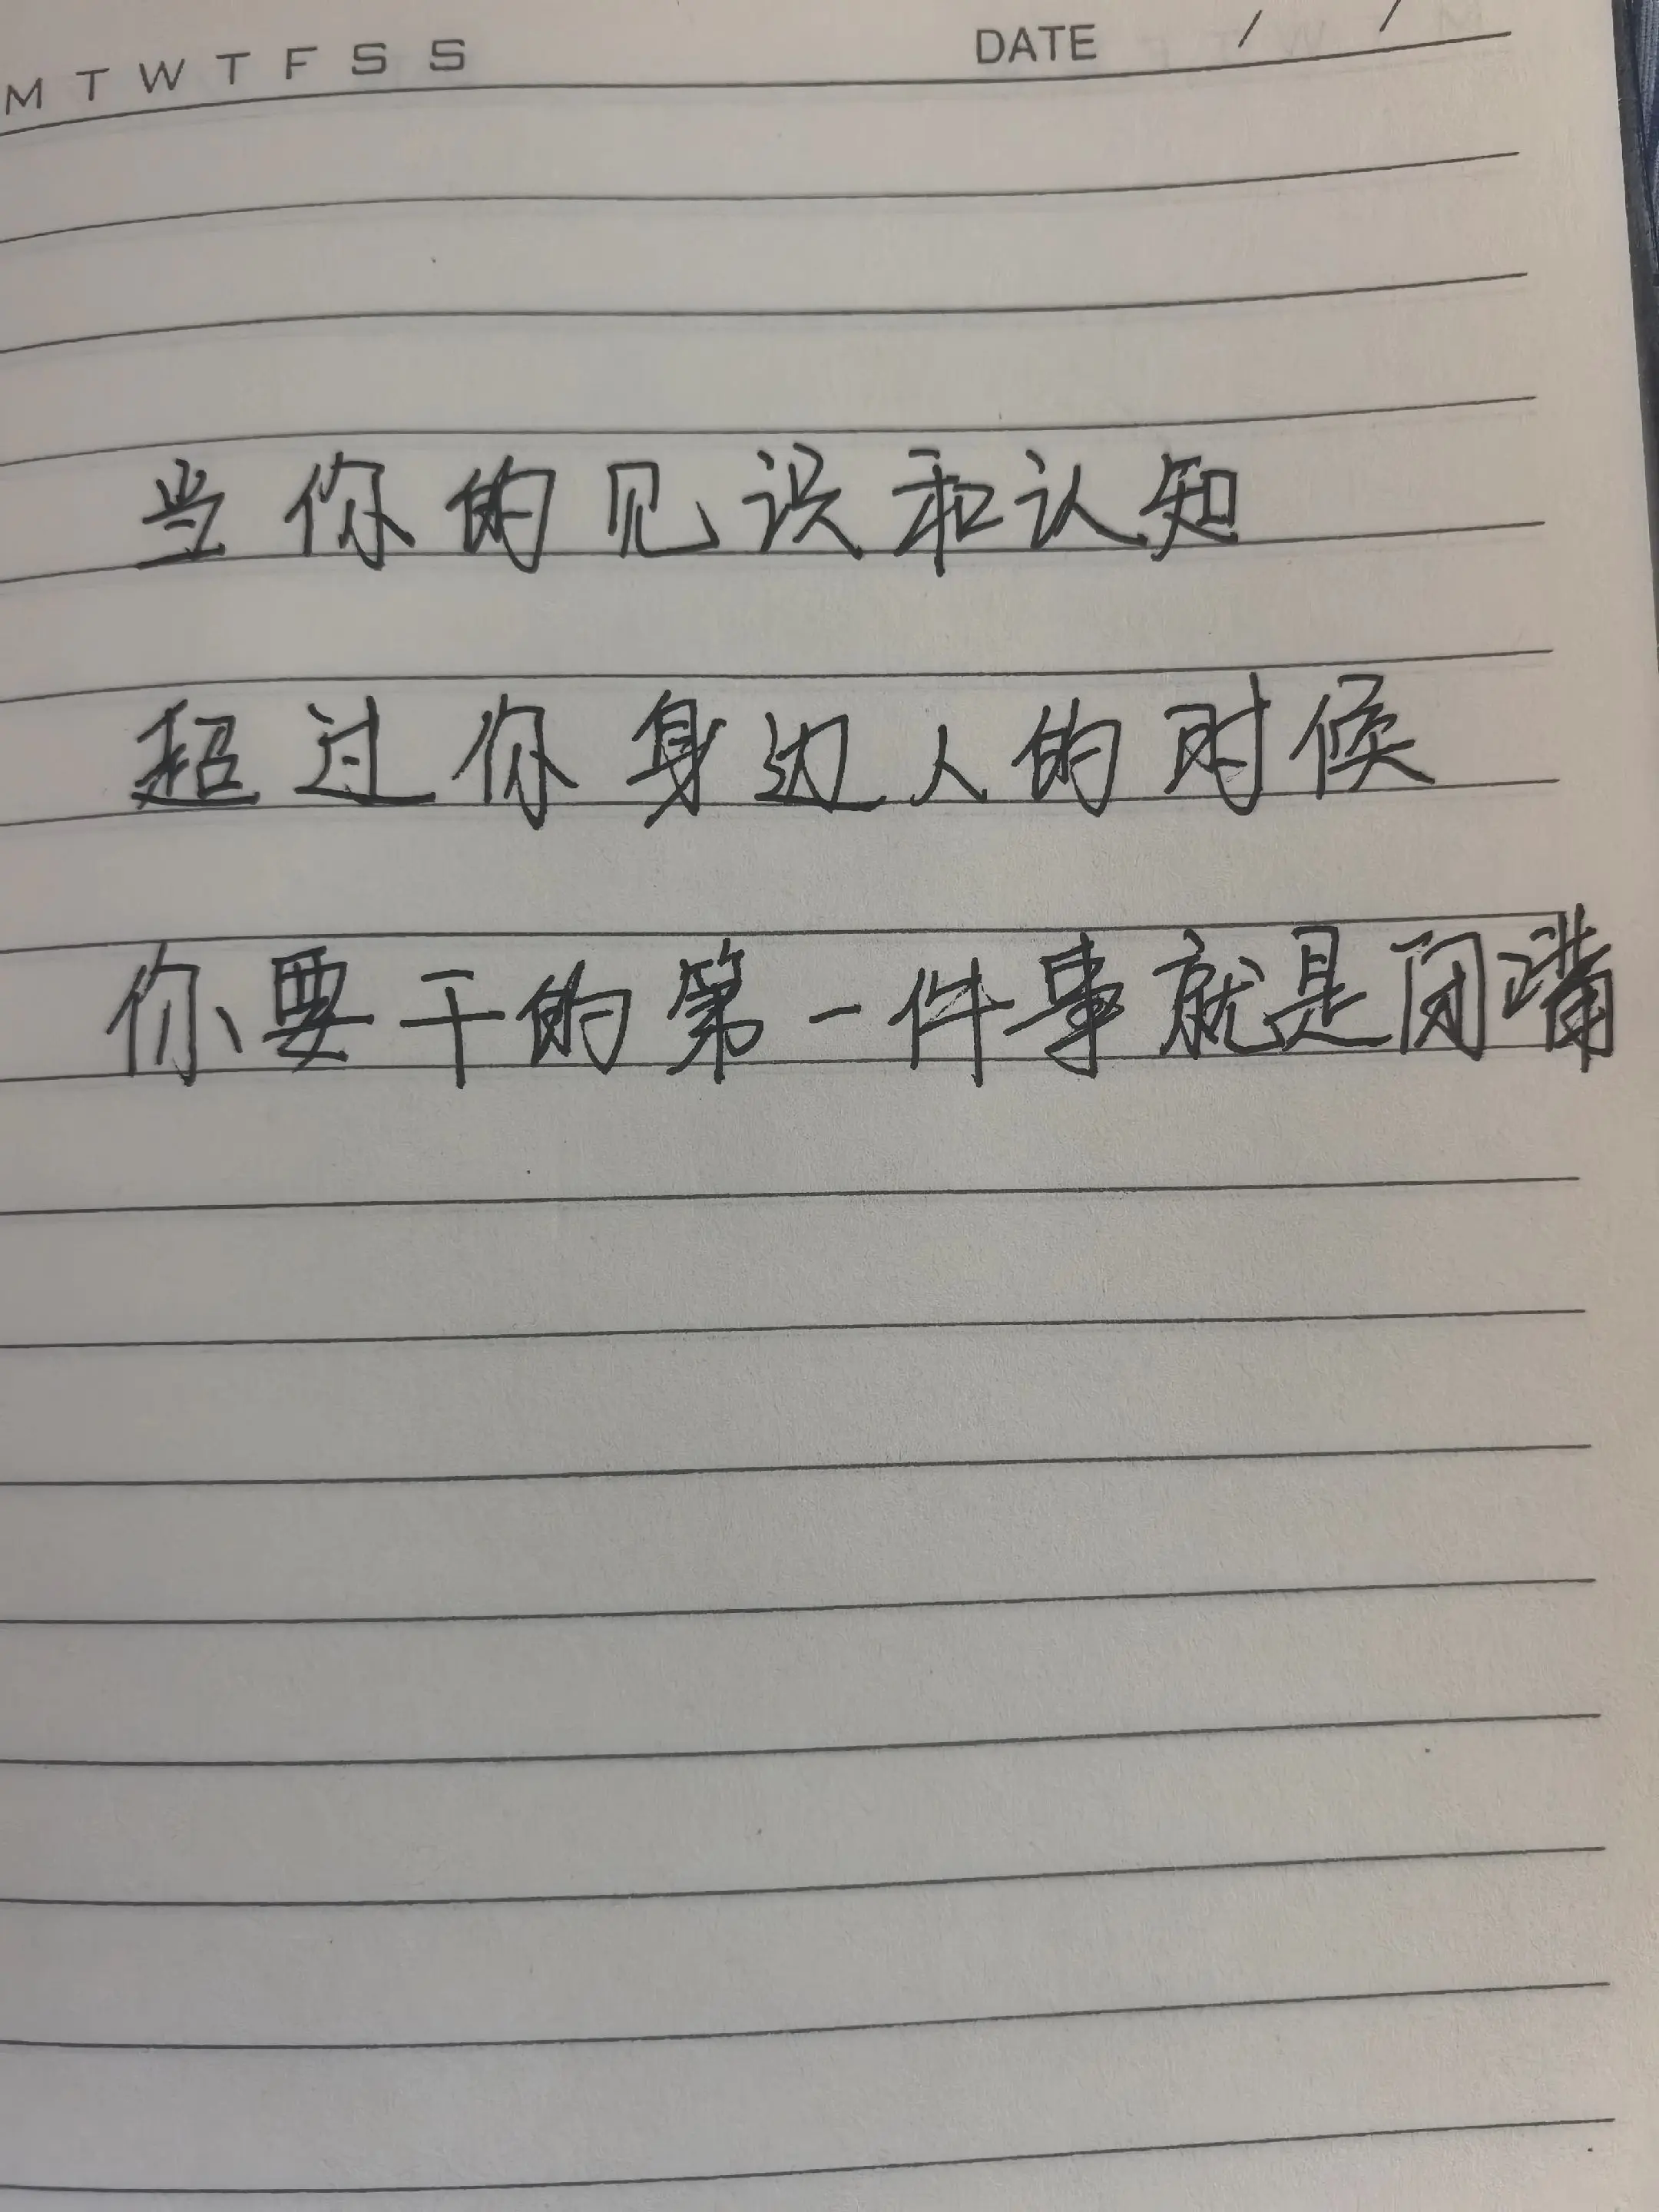 M T W T F S S DATE / /
当你的见识和认知
超过你身边人的时候
你要干的第一件事就是闭嘴